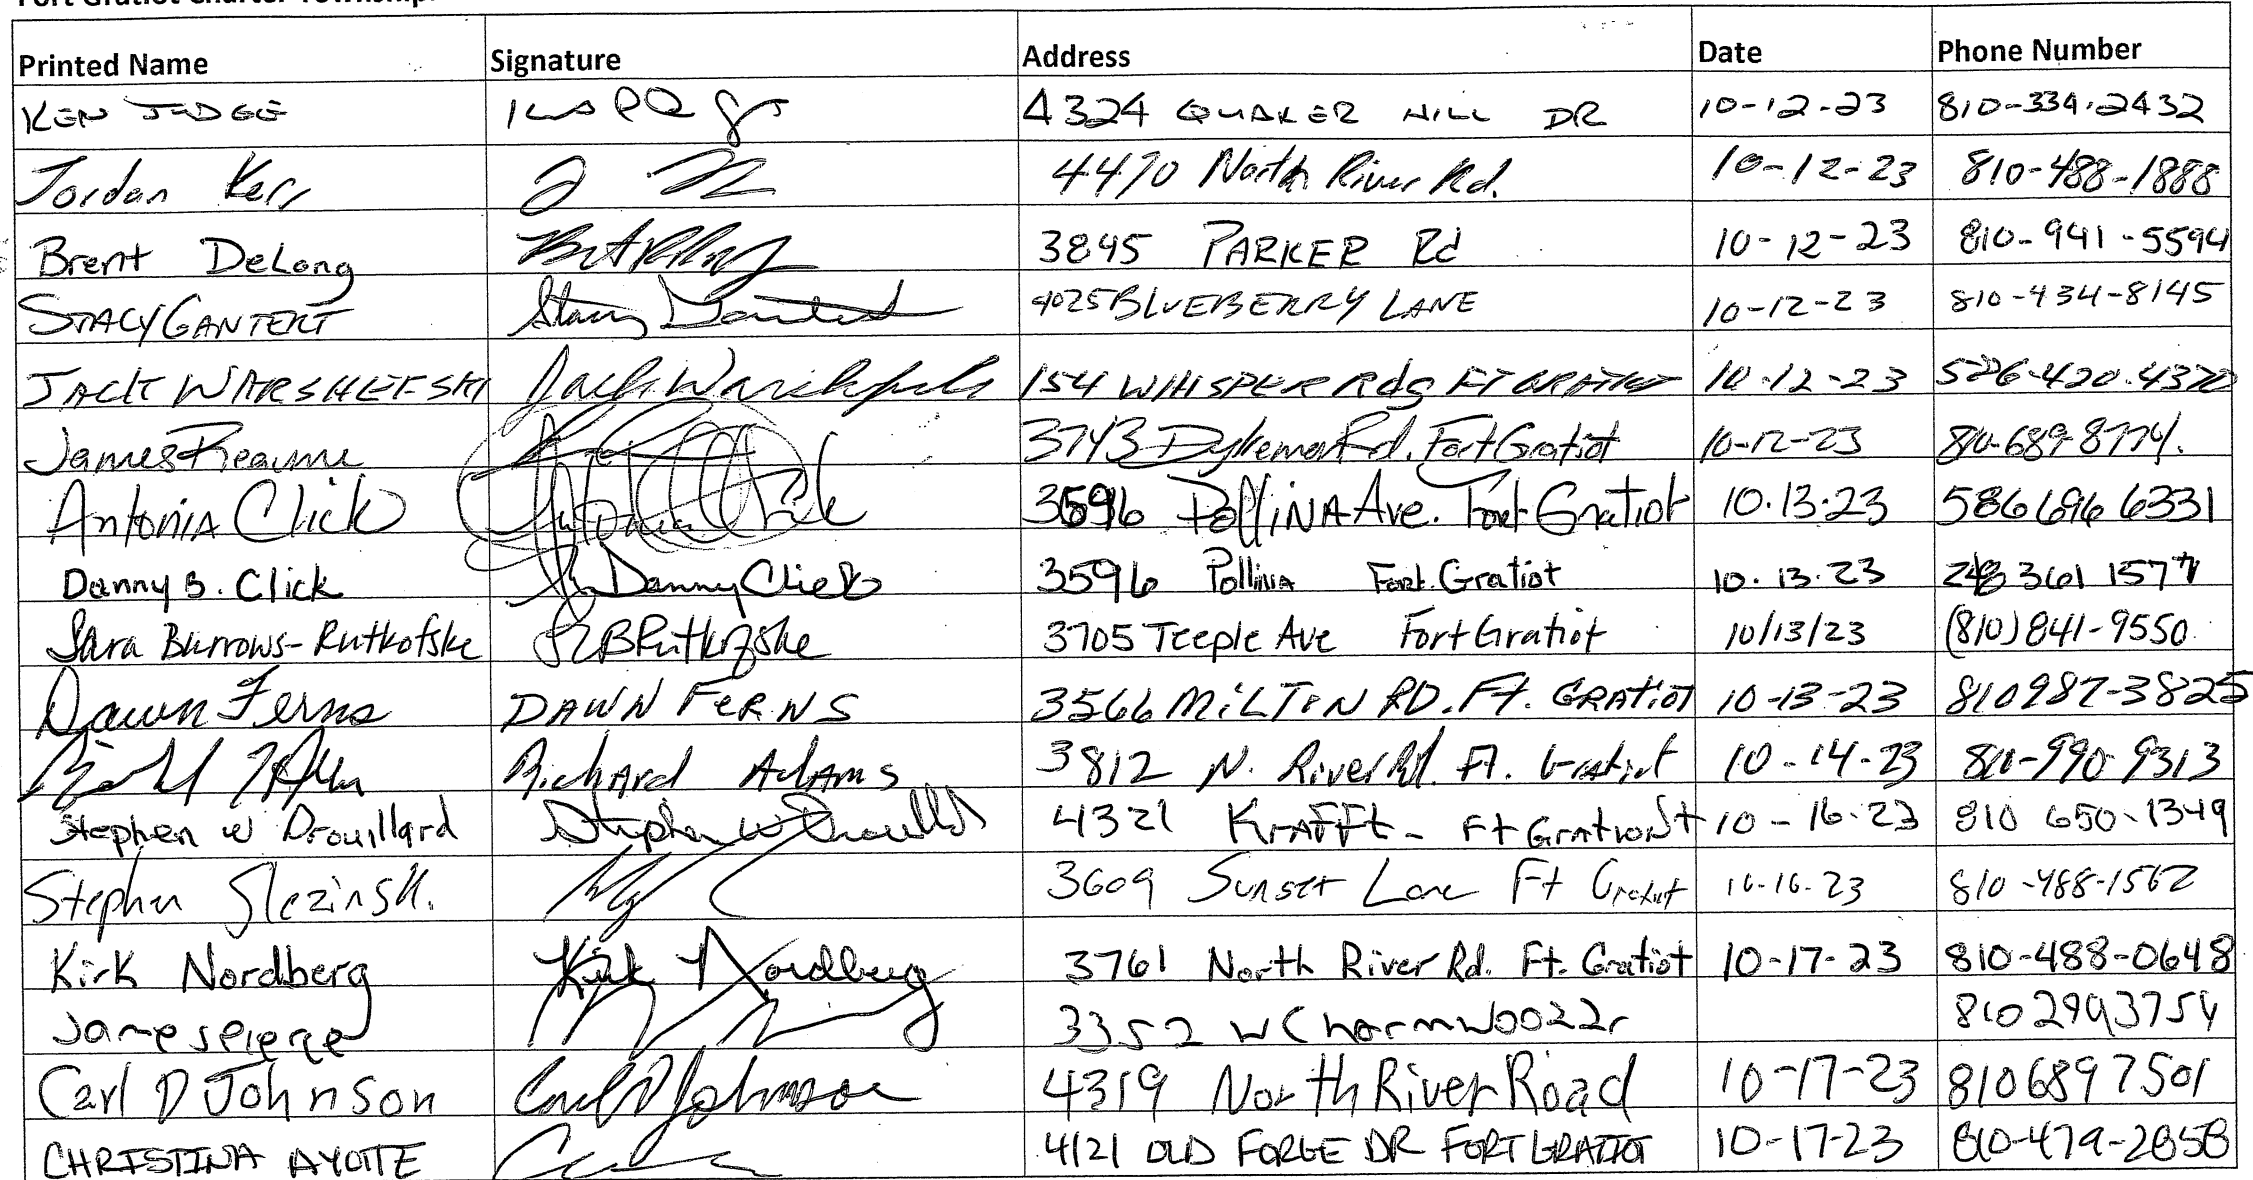 Fort Gratiot Charter Township
Printed Name Signature Address Date Phone Number
KEN JUDGE 4324 QUAKER HILL DR 10-12-23 810-334-2432
Jordan Kerr 4470 North River Rd. 10-12-23 810-488-1888
Brent DeLong 3845 PARKER Rd 10-12-23 810-941-5594
STACY GANTERT Stacy Gantert 4025 BLUEBERRY LANE 10-12-23 810-434-8145
JACK WARSHEFSKI Jack Warshefski 154 WHISPER Rdg FT GRATIOT 10-12-23 586-420-4370
James Reaume 3743 Dykeman Rd. Fort Gratiot 10-12-23 810-689-8774.
Antonia Click Antonia Click 3596 Pollina Ave. Fort Gratiot 10.13.23 586 696 6331
Danny B. Click Danny Click 3596 Pollina Fort. Gratiot 10.13.23 248 361 1577
Sara Burrows-Rutkofske SBRutkofske 3705 Teeple Ave Fort Gratiot 10/13/23 (810) 841-9550
Dawn Ferns DAWN FERNS 3566 MILTON RD. Ft. GRATIOT 10-13-23 810 987-3825
Richard Adams 3812 N. River Rd. Ft. Gratiot 10-14-23 810-990-9313
Stephen W Drouillard Stephen W Drouillard 4321 KRAFFt - Ft Gratiot 10-16-23 810 650-1349
Stephen Slezinski 3609 Sunset Lane Ft Gratiot 10-16-23 810-488-1562
Kirk Nordberg Kirk Nordberg 3761 North River Rd. Ft. Gratiot 10-17-23 810-488-0648
James pierce 3352 W Charmwood 810 299 3754
Carl D Johnson Carl D Johnson 4319 North River Road 10-17-23 810 689 7501
CHRISTINA AYOTTE 4121 OLD FORGE DR FORT GRATIOT 10-17-23 810-479-2858